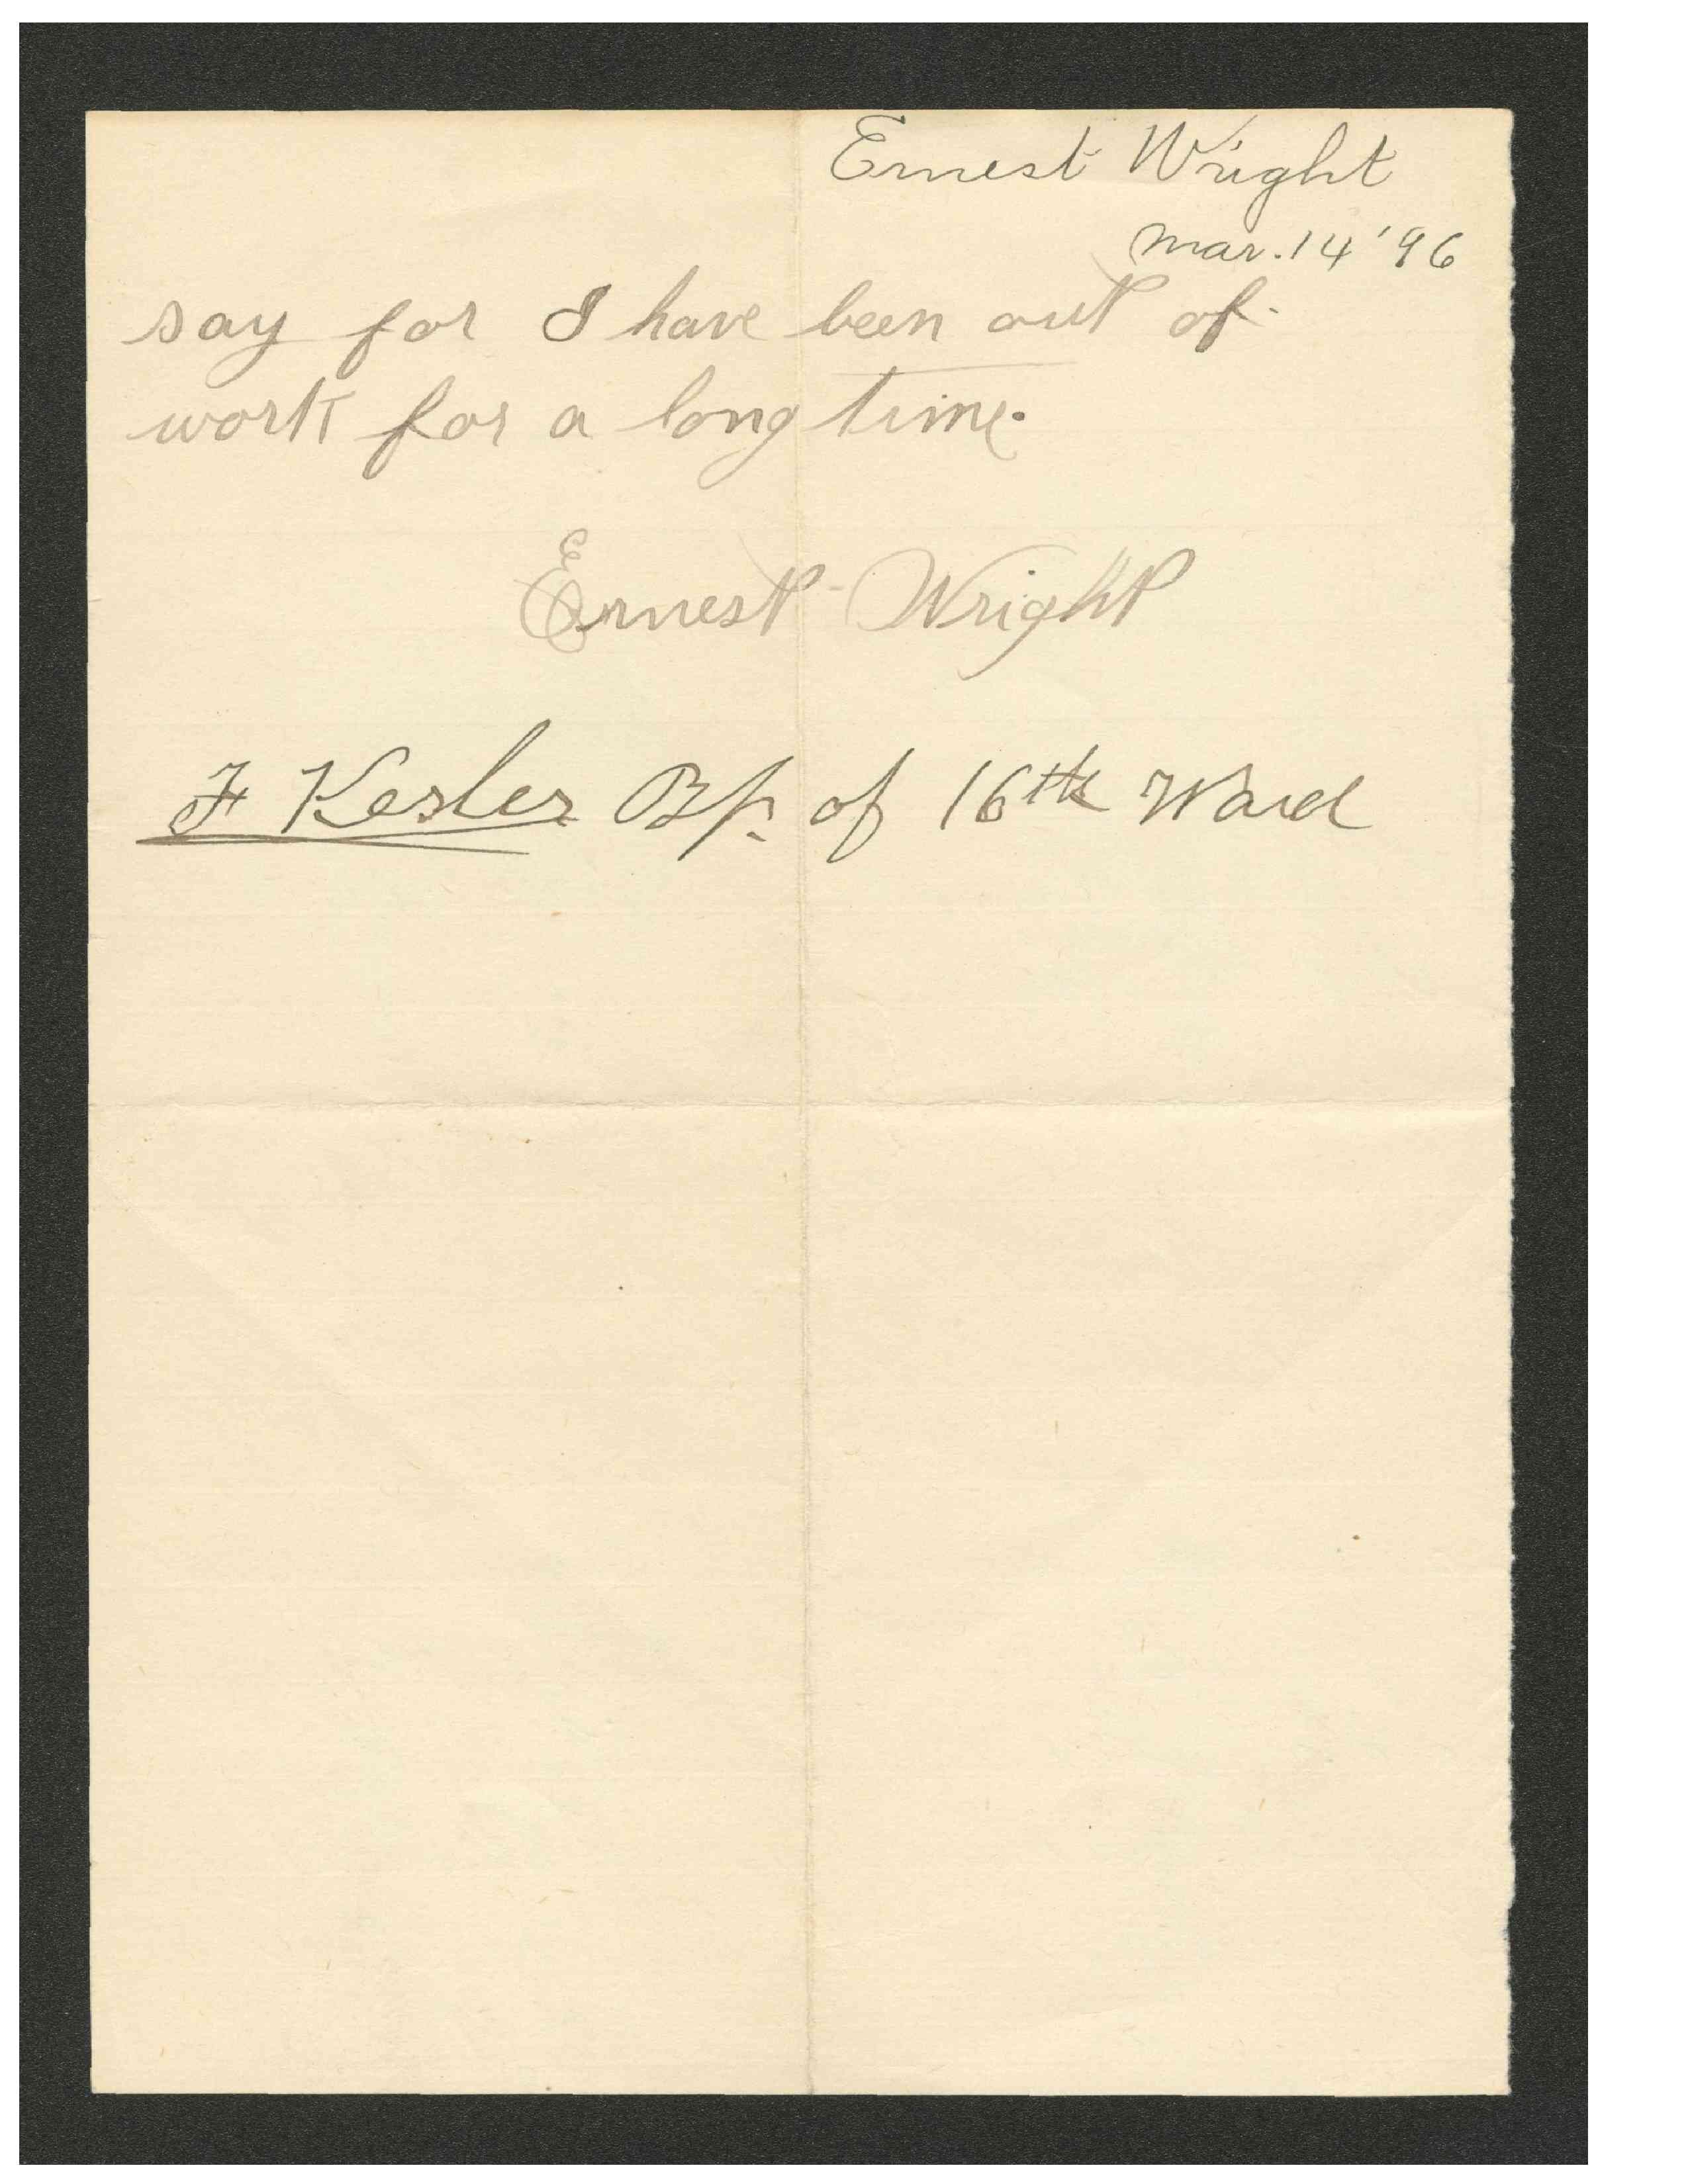 Ernest Wright
Mar. 14 '96
say for I have been out of
work for a long time.
Ernest Wright
F Kesler Bp. of 16th Ward